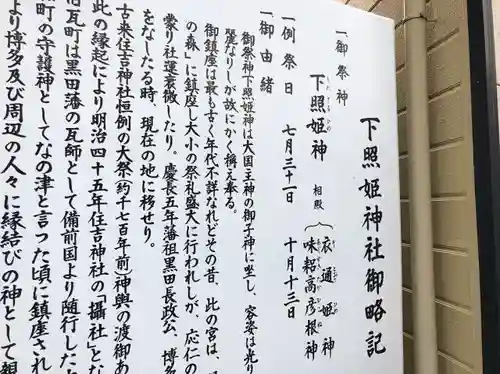 下照姫神社御略記
一御祭神
下照姫神 相殿 衣通姫神
味耜高彦根神
一例祭日 七月三十一日 十月十三日
一御由緒
御祭神下照姫神は大国主神の御子神に坐し、容姿は光り
麗なりしが故にかく称え奉る。
御鎮座は最も古く年代不詳なれどその昔、此の宮は、
の森」に鎮座し大小の祭礼盛大に行われしが、応仁の
乗り社運衰微したり。慶長五年藩祖黒田長政公、博多
をなしたる時、現在の地に移せり。
古来住吉神社恒例の大祭(約千七百年前)神輿の渡御あ
此の縁起により明治四十五年住吉神社の「攝社」とな
瓦町は黒田藩の瓦師として備前国より随行した
町の守護神としてなの津と言った頃に鎮座され
より博多及び周辺の人々に縁結びの神として親